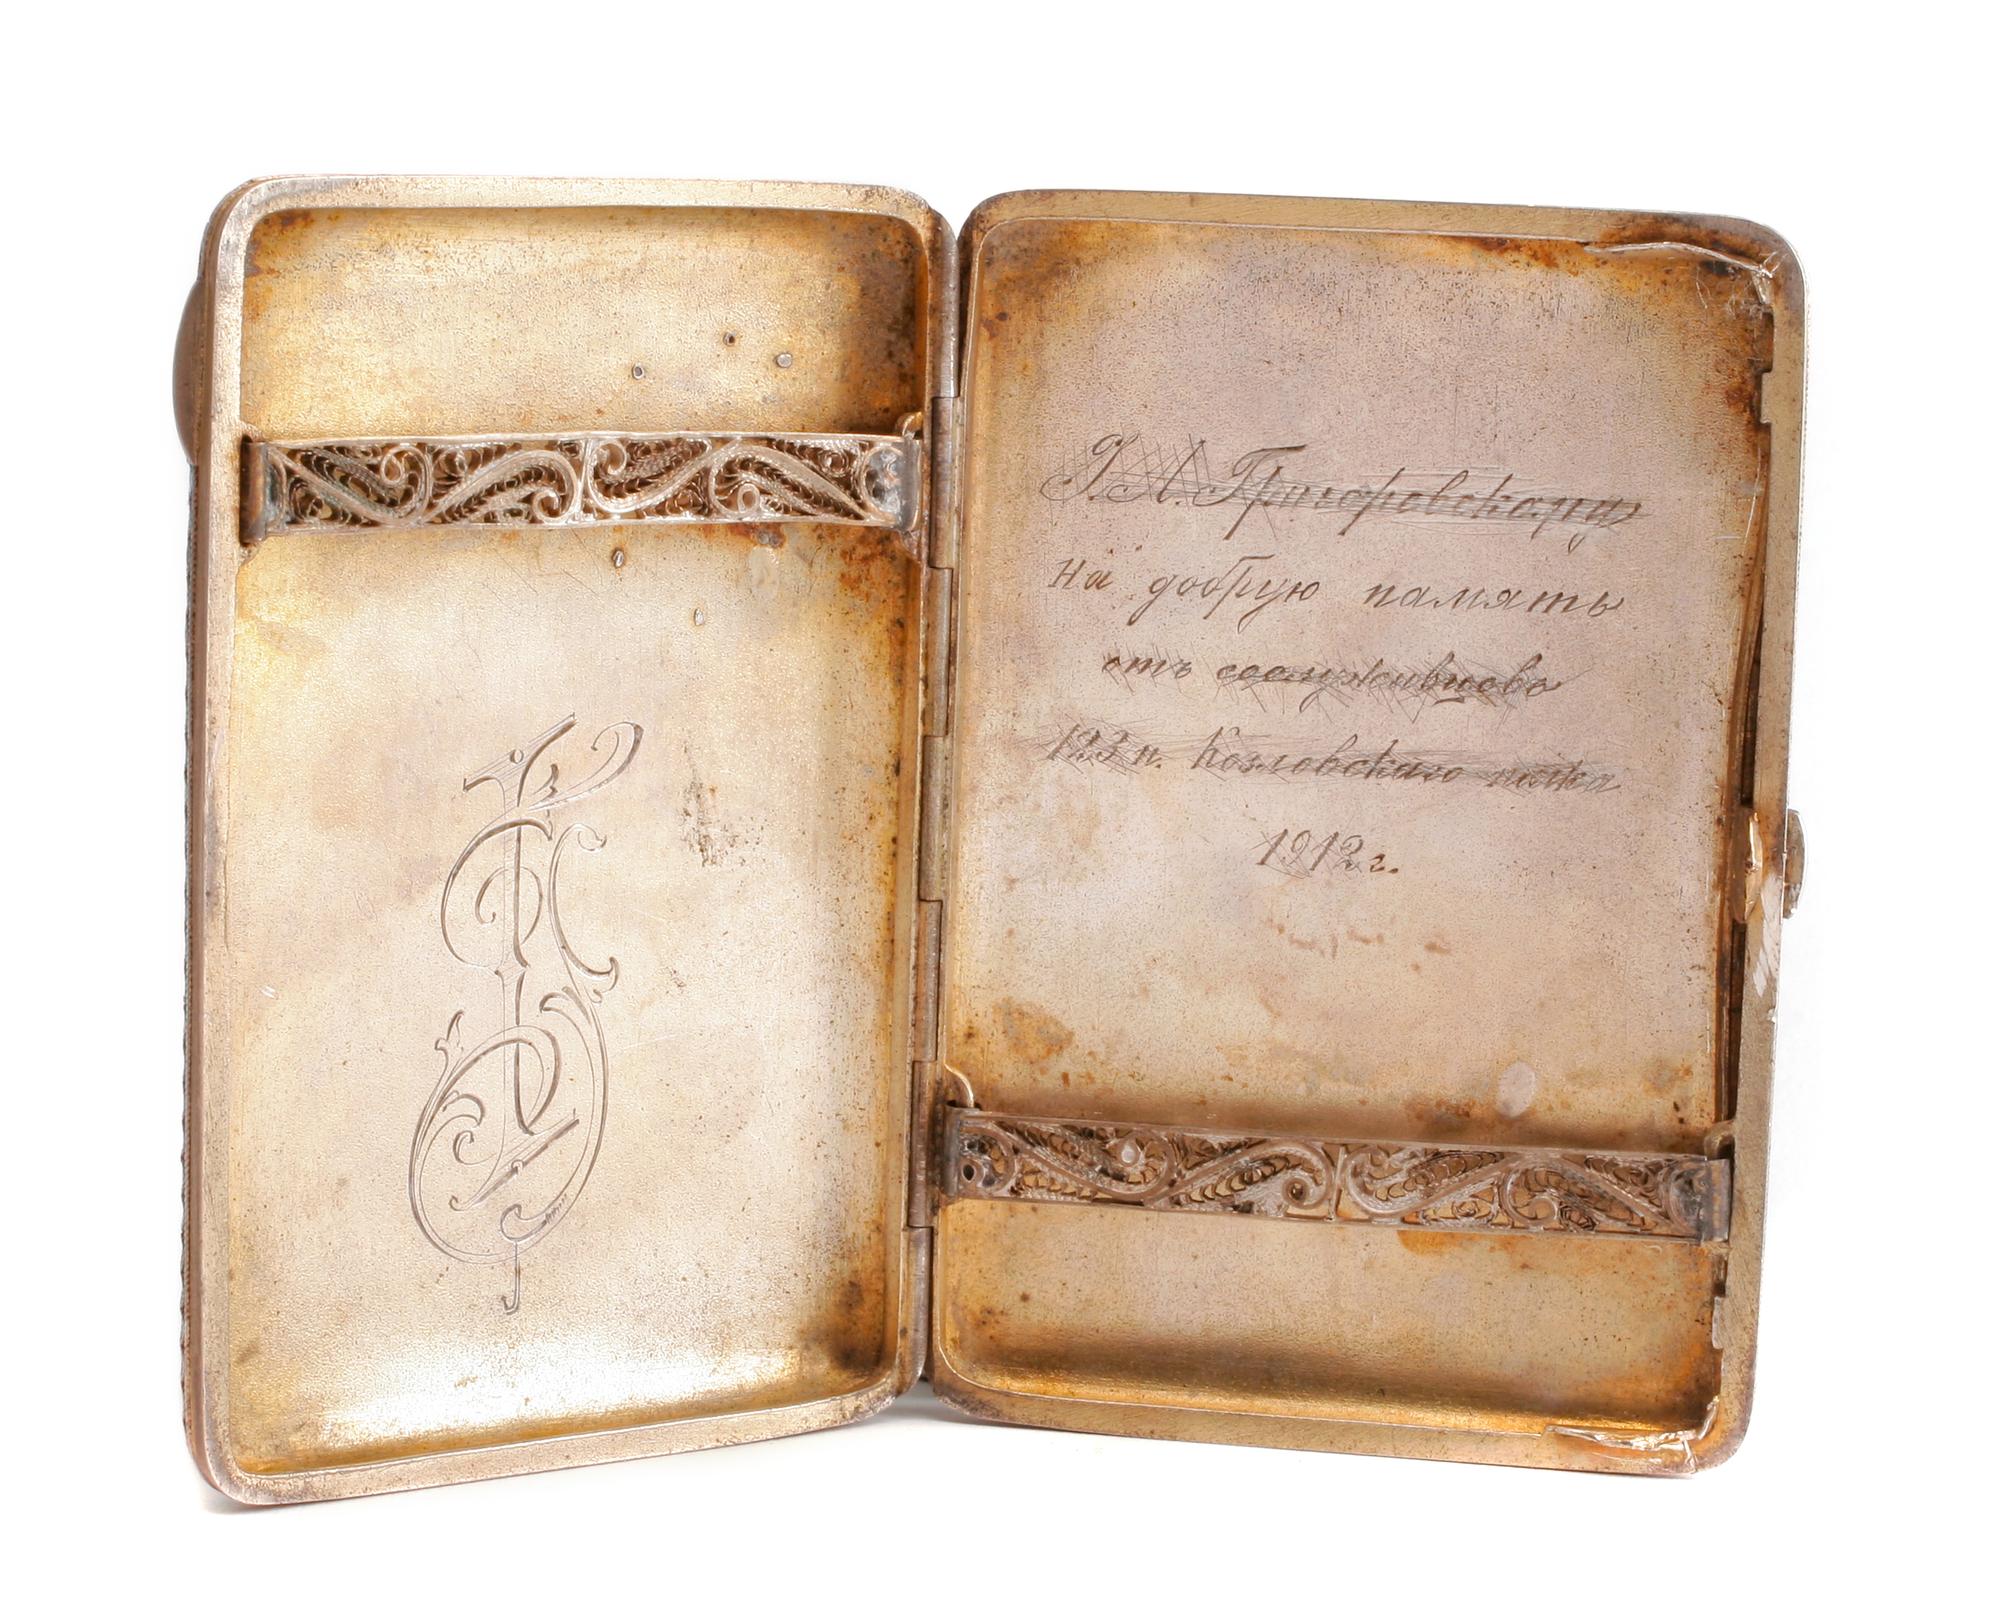 Г. А. Григоровскому
на добрую память
отъ сослуживцовъ
123 п. Козловскаго полка
1912 г.